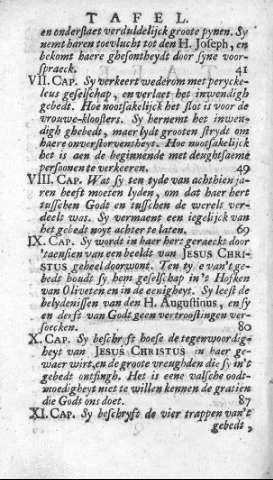 TAFEL.
en onderstaet verduldelijck groote pynen. Sy
nemt haren toevlucht tot den H. Joseph, en
bekomt haere ghesontheydt door syne voor-
spraeck. 41
VII. CAP. Sy verkeert wederom met perycke-
leus geselschap, en verlaet het inwendigh
gebedt. Hoe nootsakelijck het slot is voor de
vrouwe-kloosters. Sy hernemt het inwen-
digh ghebedt, maer lydt grooten strydt om
haere onversterventheyt. Hoe nootsakelijck
het is aen de beginnende met deughtsaeme
persoonen te verkeeren. 49
VIII. CAP. Wat sy ten tyde van achthien ja-
ren heeft moeten lyden, om dat haer hert
tusschen Godt en tusschen de werelt ver-
deelt was. Sy vermaent een iegelijck van
het gebedt noyt achter te laten. 69
IX. CAP. Sy wordt in haer hert geraeckt door
't aensien van een beeldt van JESUS CHRI-
STUS geheel doorwont. Ten tyde van 't ge-
bedt houdt sy hem geselschap in 't Hofken
van Oliveten en in de eenigheyt. Sy leest de
belydenissen van den H. Augustinus, en sy
en derft van Godt geen vertrooslingen ver-
soecken. 80
X. CAP. Sy beschryft hoese de tegenwoordig-
heyt van JESUS CHRISTUS in haer ge-
waer wirt, en de groote vreughden die sy in 't
gebedt ontfingh. Het is eene valsche oodt-
moedigheyt niet te willen kennen de gratien
die Godt ons doet. 87
XI. CAP. Sy beschryft de vier trappen van 't
gebedt,